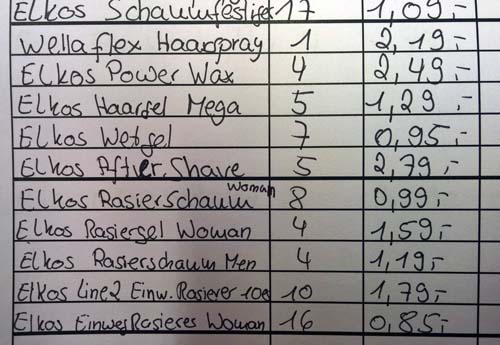 Elkos Schaumfestiger 17 1,09,-
Wellaflex Haarspray 1 2,19,-
Elkos Power Wax 4 2,49,-
Elkos Haargel Mega 5 1,29,-
Elkos Wetgel 7 0,95,-
Elkos After Shave 5 2,79,-
Elkos Rasierschaum Woman 8 0,99,-
Elkos Rasiergel Woman 4 1,59,-
Elkos Rasierschaum Men 4 1,19,-
Elkos Line2 Einw. Rasierer 10er 10 1,79,-
Elkos EinwegRasieres Woman 16 0,85,-